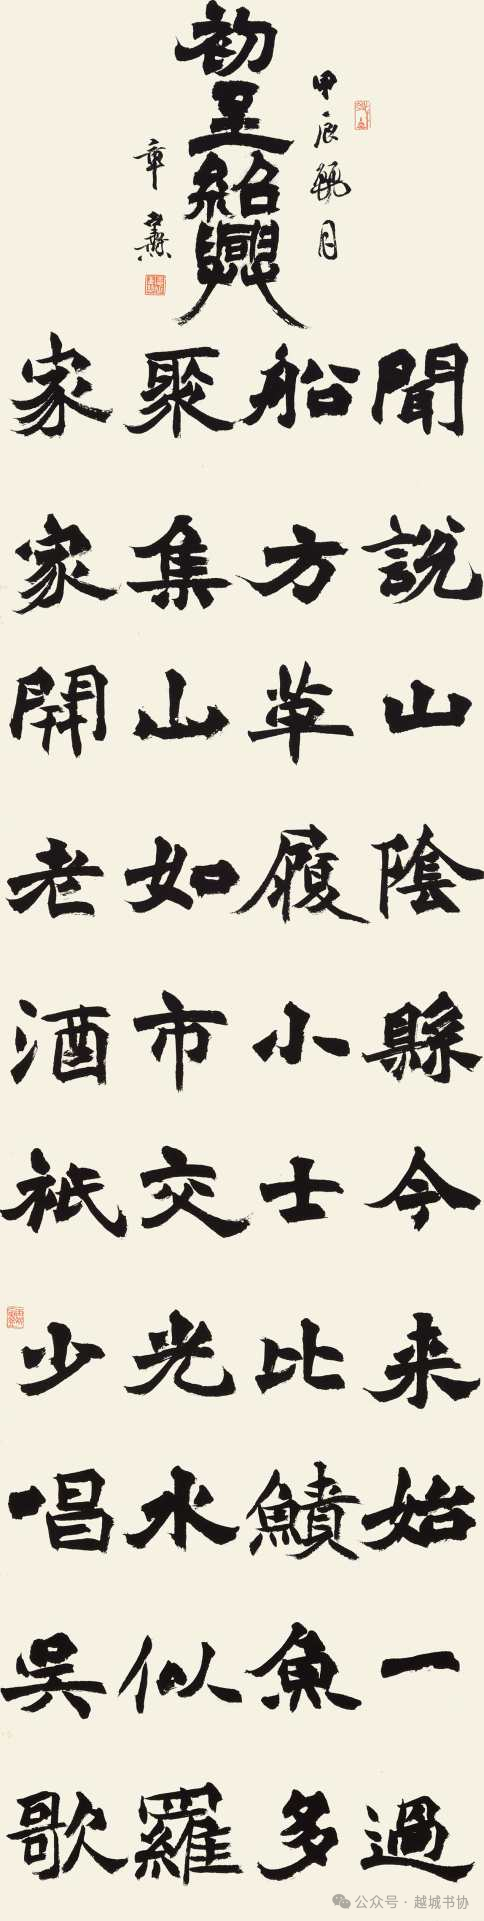 初至紹興
聞說山陰縣今來始一過
船方革履小士比鰿魚多
聚集山如市交光水似羅
家家開老酒祇少唱吳歌
甲辰 月
章
公众号 · 越城书协